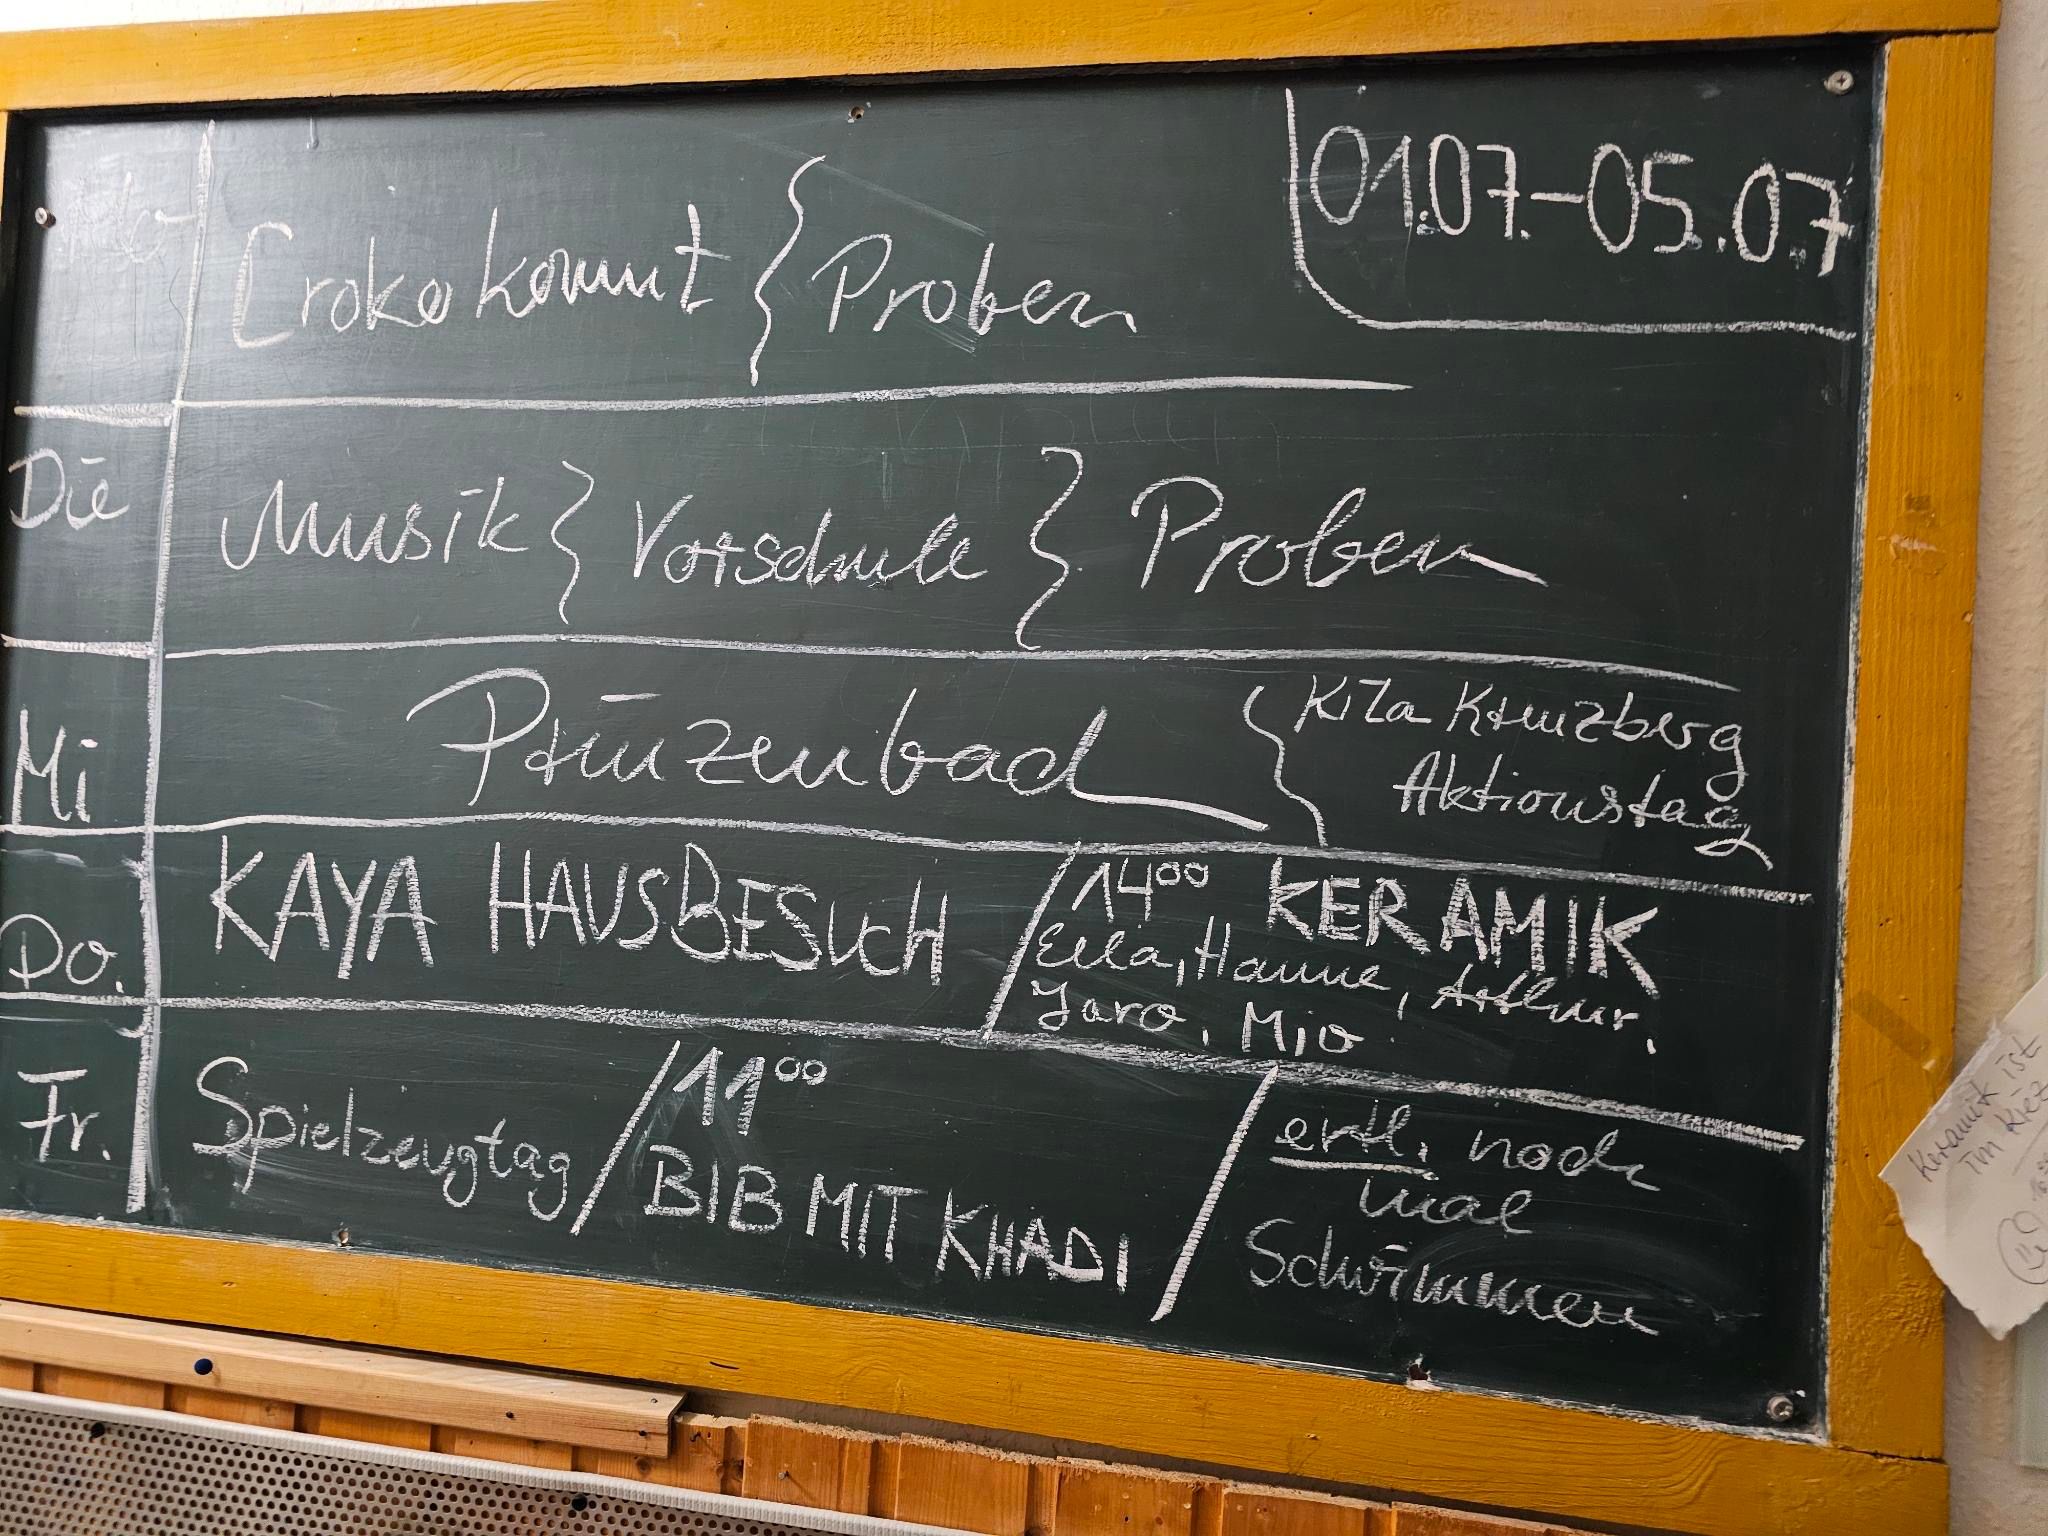 01.07.-05.07
Mo Croko kommt { Proben
Die Musik } Vorschule } Proben
Mi Prinzenbad { Kita Kreuzberg
Aktionstag
Do. KAYA HAUSBESUCH / 14⁰⁰ KERAMIK
Ella, Hanne, Arthur,
Jaro, Mio
Fr. Spielzeugtag / 11⁰⁰
BIB MIT KHADI / evtl. noch
mal
Schwimmen
Keramik ist
im Kiez